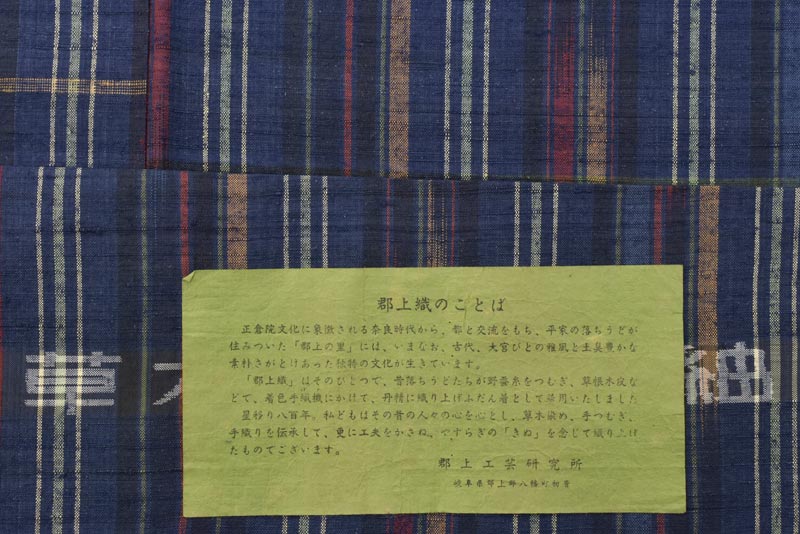 郡上織のことば
正倉院文化に象徴される奈良時代から、都と交流をもち、平家の落ちうどが
住みついた「郡上の里」には、いまなお、古代、大宮びとの雅風と土臭豊かな
素朴さがとけあった独特の文化が生きています。
「郡上織」はそのひとつで、昔落ちうどたちが野蚕糸をつむぎ、草根木皮な
どで、着色手織機にかけて、丹精に織り上げふだん着として常用いたしました
星移り八百年。私どもはその昔の人々の心を心とし、草木染め、手つむぎ、
手織りを伝承して、更に工夫をかさね、やすらぎの「きぬ」を念じて織り上げ
たものでございます。
郡上工芸研究所
岐阜県郡上郡八幡町初音
草 紬